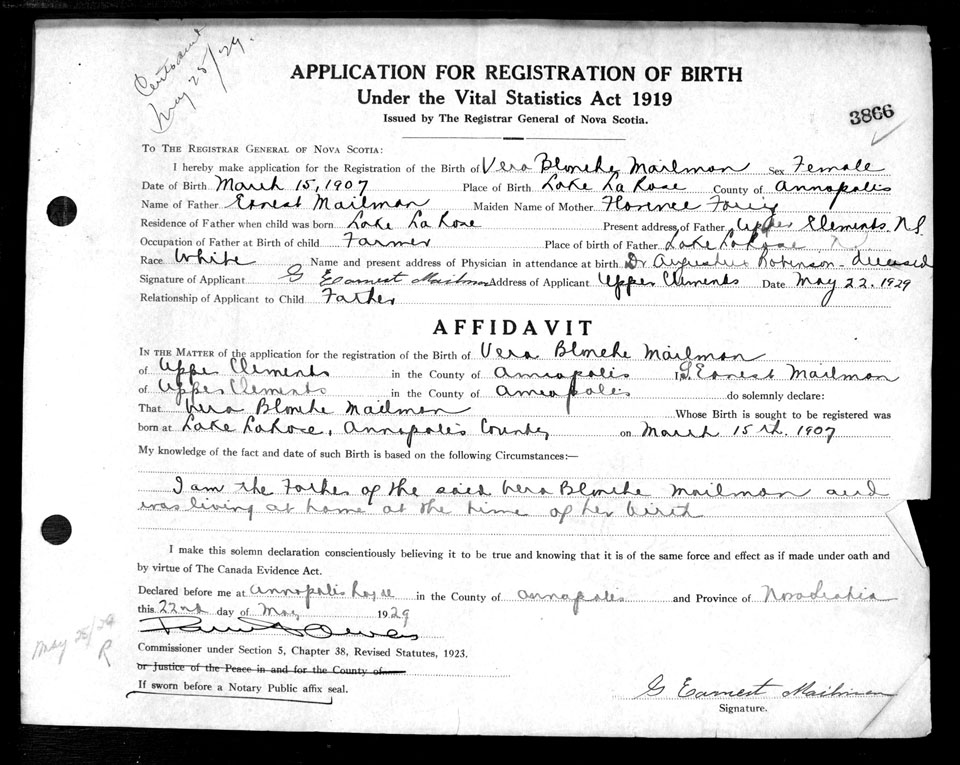 May 25/29.
APPLICATION FOR REGISTRATION OF BIRTH
Under the Vital Statistics Act 1919
Issued by The Registrar General of Nova Scotia.
3866
TO THE REGISTRAR GENERAL OF NOVA SCOTIA:
I hereby make application for the Registration of the Birth of Vera Blonche Mailman Sex Female
Date of Birth March 15, 1907 Place of Birth Lake La Rose County of Annapolis
Name of Father Ernest Mailman Maiden Name of Mother Florence
Residence of Father when child was born Lake La Rose Present address of Father Upper Clements N.S.
Occupation of Father at Birth of child Farmer Place of birth of Father Lake LaRose
Race White Name and present address of Physician in attendance at birth Dr Augustus Robinson - deceased
Signature of Applicant G Earnest Mailman Address of Applicant Upper Clements Date May 22. 1929
Relationship of Applicant to Child Father
AFFIDAVIT
IN THE MATTER of the application for the registration of the Birth of Vera Blonche Mailman
of Upper Clements in the County of Annapolis I, G. Ernest Mailman
of Upper Clements in the County of Annapolis do solemnly declare:
That Vera Blonche Mailman Whose Birth is sought to be registered was
born at Lake LaRose, Annapolis County on March 15th, 1907
My knowledge of the fact and date of such Birth is based on the following Circumstances:—
I am the Father of the said Vera Blonche Mailman and
was living at home at the time of her birth
I make this solemn declaration conscientiously believing it to be true and knowing that it is of the same force and effect as if made under oath and
by virtue of The Canada Evidence Act.
Declared before me at Annapolis Royal in the County of Annapolis and Province of Nova Scotia
this 22nd day of May 1929
Commissioner under Section 5, Chapter 38, Revised Statutes, 1923.
or Justice of the Peace in and for the County of
If sworn before a Notary Public affix seal.
May 25/29
R
G Earnest Mailman
Signature.